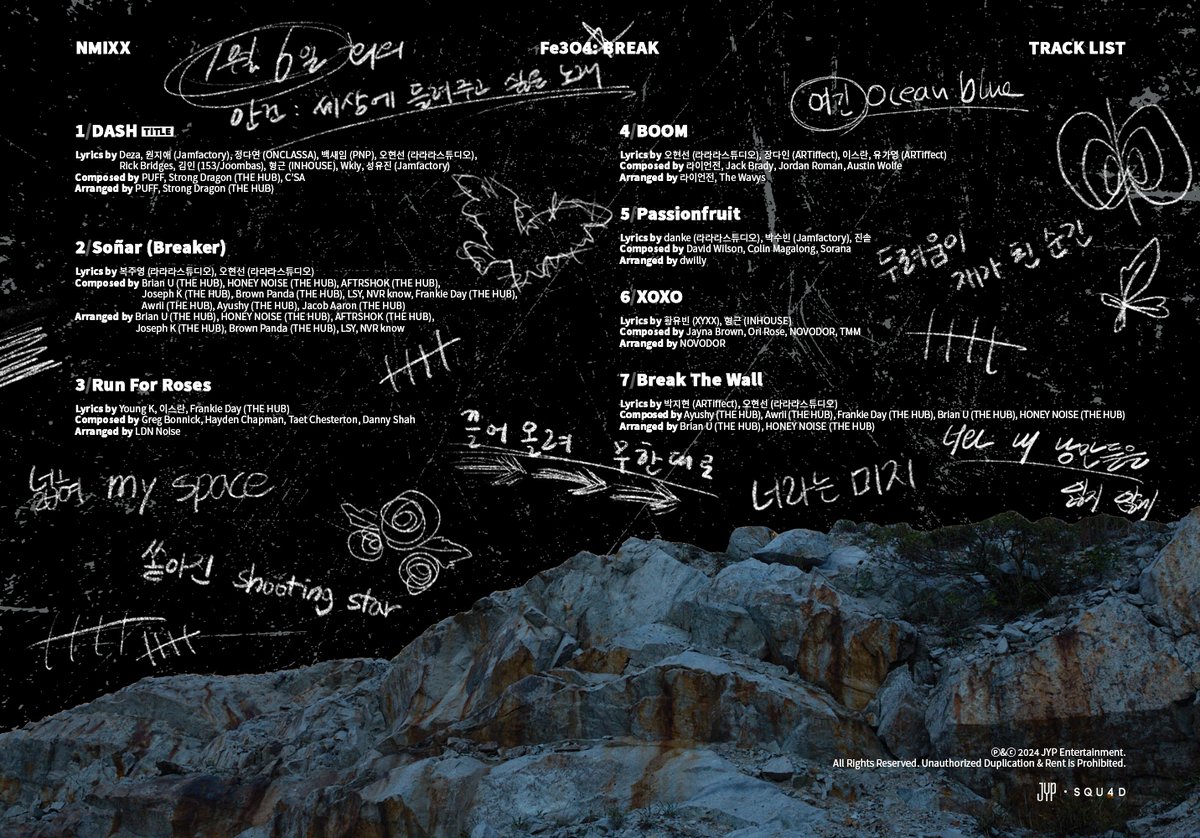 NMIXX
Fe3O4: BREAK
TRACK LIST
1월 6일 회의
안건 : 세상에 들려주고 싶은 노래
여긴 Ocean blue
1/DASH TITLE
Lyrics by Deza, 원지애 (Jamfactory), 정다연 (ONCLASSA), 백새임 (PNP), 오현선 (라라라스튜디오),
Rick Bridges, 김인 (153/Joombas), 형근 (INHOUSE), Wkly, 성유진 (Jamfactory)
Composed by PUFF, Strong Dragon (THE HUB), C'SA
Arranged by PUFF, Strong Dragon (THE HUB)
2/Soñar (Breaker)
Lyrics by 복주영 (라라라스튜디오), 오현선 (라라라스튜디오)
Composed by Brian U (THE HUB), HONEY NOISE (THE HUB), AFTRSHOK (THE HUB),
Joseph K (THE HUB), Brown Panda (THE HUB), LSY, NVR know, Frankie Day (THE HUB),
Awrii (THE HUB), Ayushy (THE HUB), Jacob Aaron (THE HUB)
Arranged by Brian U (THE HUB), HONEY NOISE (THE HUB), AFTRSHOK (THE HUB),
Joseph K (THE HUB), Brown Panda (THE HUB), LSY, NVR know
3/Run For Roses
Lyrics by Young K, 이스란, Frankie Day (THE HUB)
Composed by Greg Bonnick, Hayden Chapman, Taet Chesterton, Danny Shah
Arranged by LDN Noise
4/BOOM
Lyrics by 오현선 (라라라스튜디오), 장다인 (ARTiffect), 이스란, 유가영 (ARTiffect)
Composed by 라이언전, Jack Brady, Jordan Roman, Austin Wolfe
Arranged by 라이언전, The Wavys
5/Passionfruit
Lyrics by danke (라라라스튜디오), 박수빈 (Jamfactory), 진솔
Composed by David Wilson, Colin Magalong, Sorana
Arranged by dwilly
두려움이
재가 된 순간
6/XOXO
Lyrics by 황유빈 (XYXX), 형근 (INHOUSE)
Composed by Jayna Brown, Ori Rose, NOVODOR, TMM
Arranged by NOVODOR
7/Break The Wall
Lyrics by 박지현 (ARTiffect), 오현선 (라라라스튜디오)
Composed by Ayushy (THE HUB), Awrii (THE HUB), Frankie Day (THE HUB), Brian U (THE HUB), HONEY NOISE (THE HUB)
Arranged by Brian U (THE HUB), HONEY NOISE (THE HUB)
끌어 올려 무한대로
넓혀 my space
너라는 미지
너와 내 낭만들은
잃지 않게
쏟아진 shooting star
Ⓟ&ⓒ 2024 JYP Entertainment.
All Rights Reserved. Unauthorized Duplication & Rent is Prohibited.
JYP · SQU4D